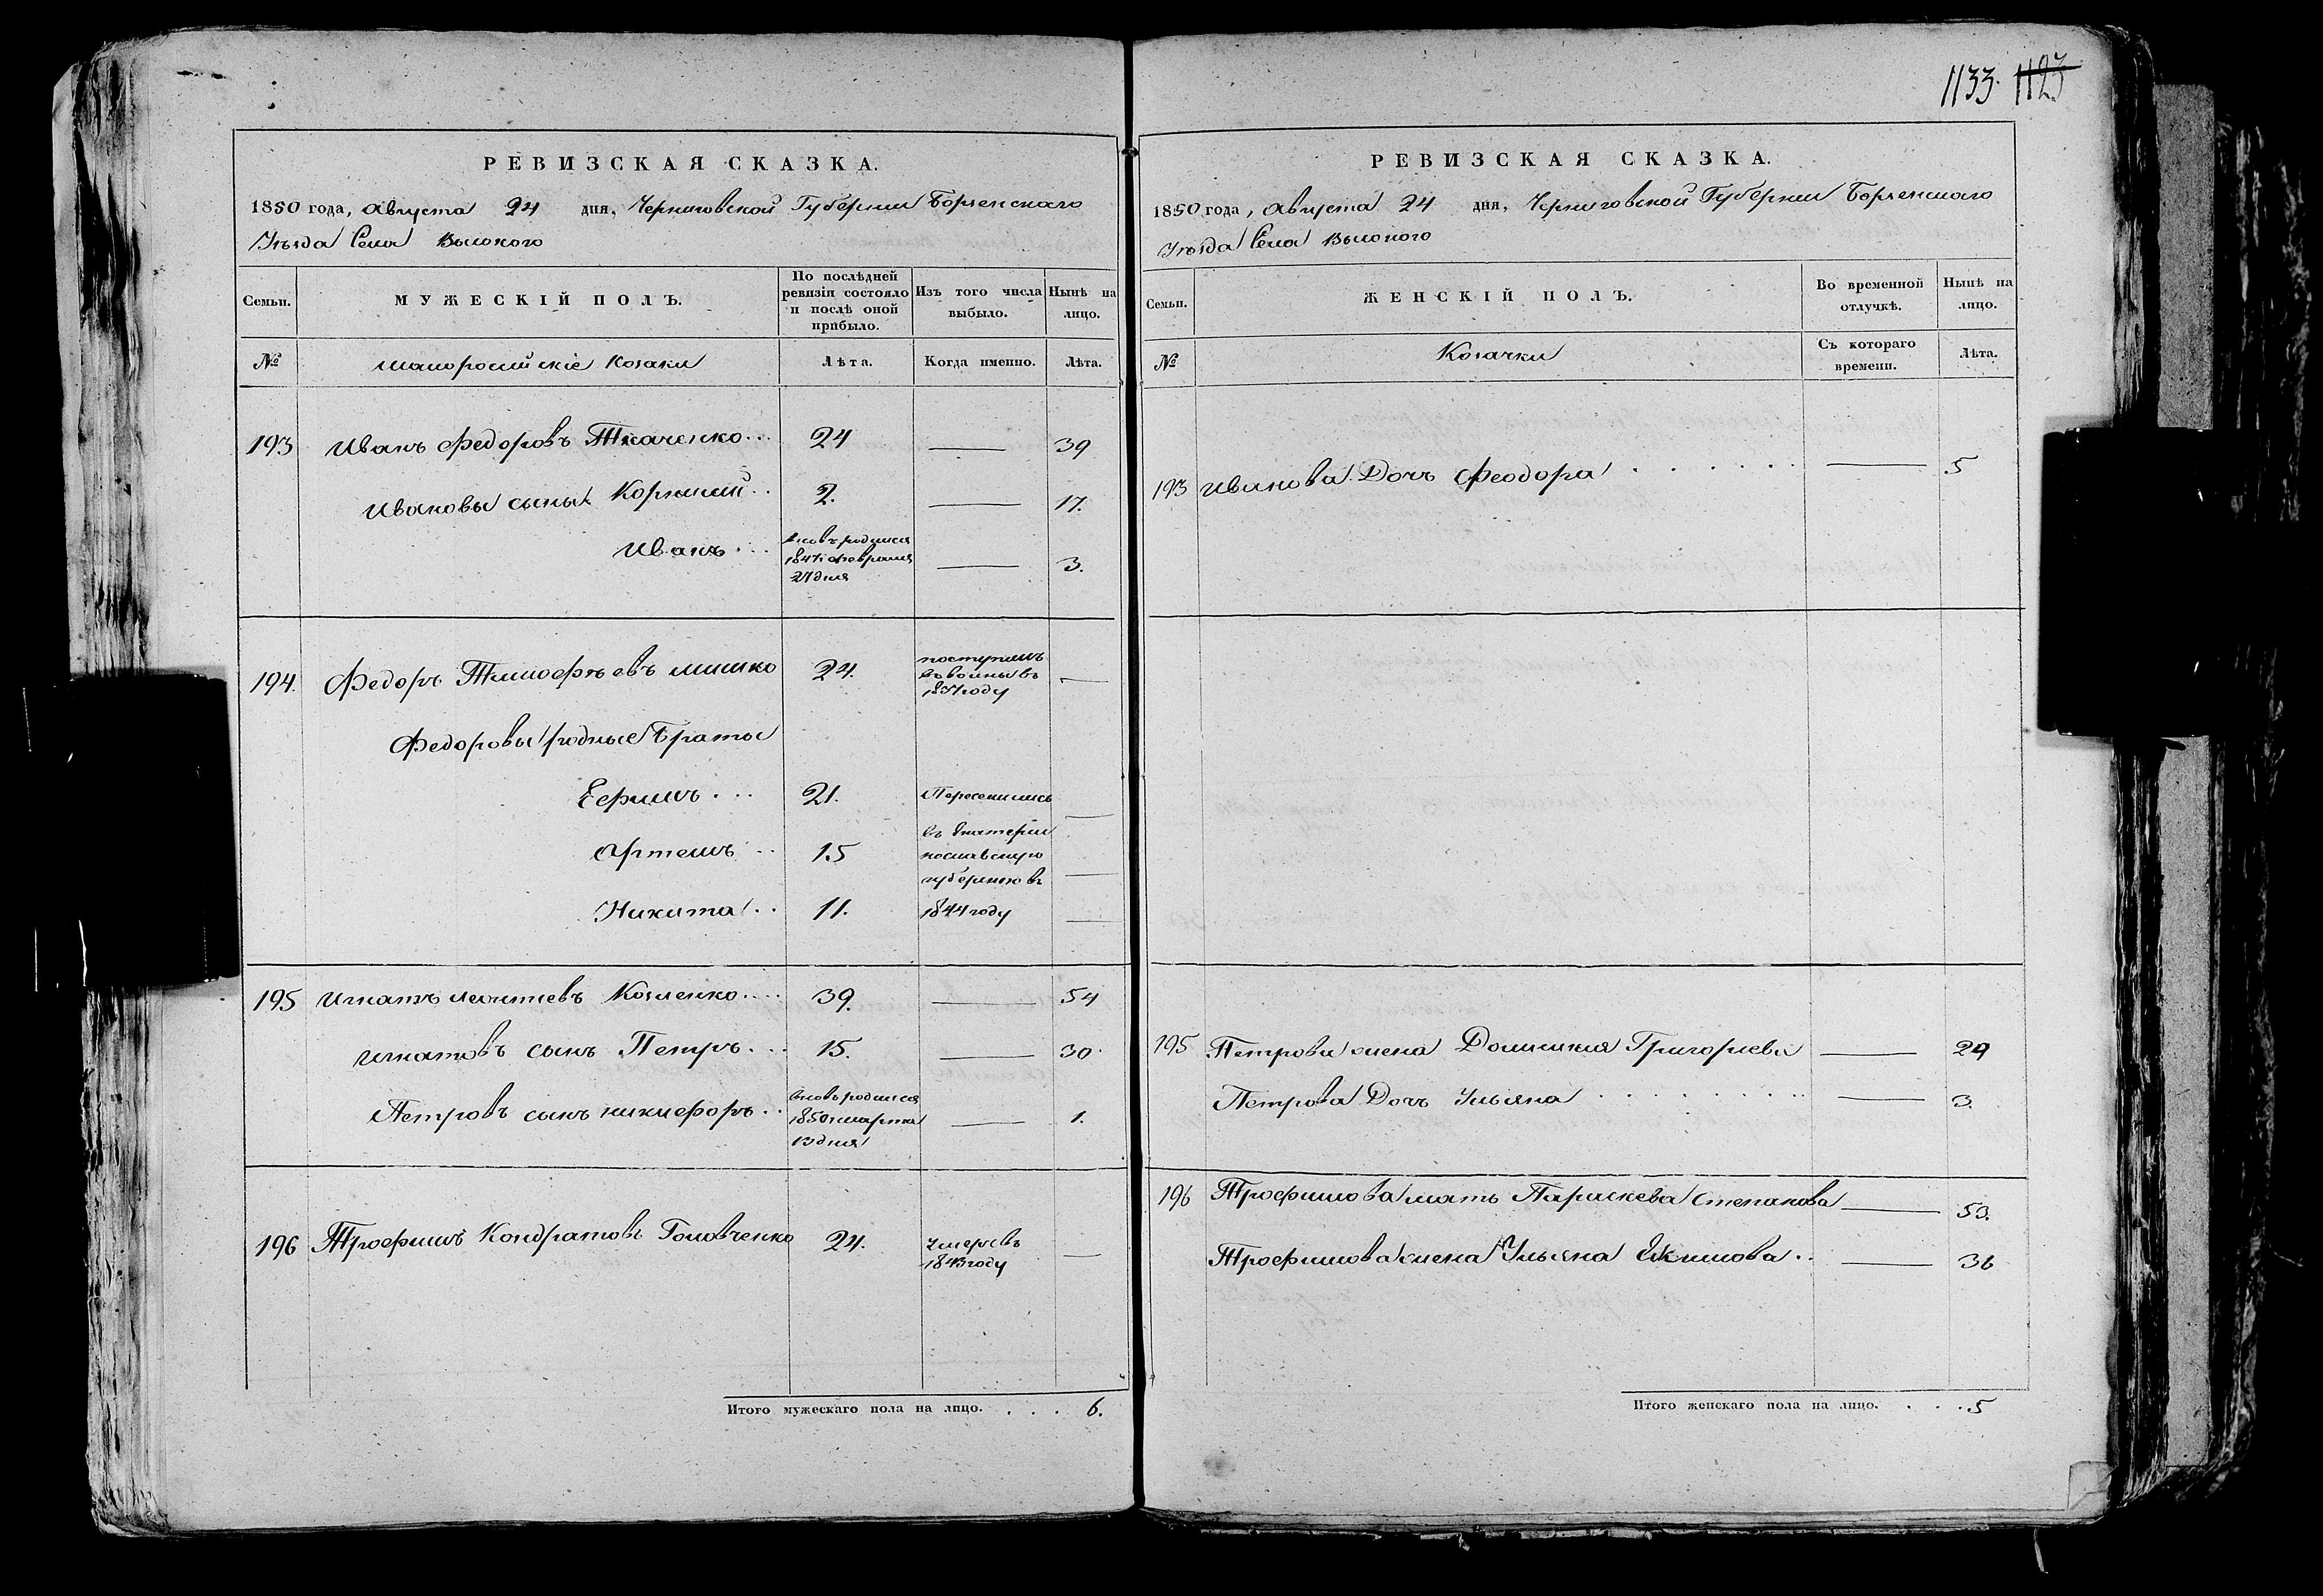 1133. 1123
РЕВИЗСКАЯ СКАЗКА.
1850 года, Августа 24 дня, Черниговской Губернии Борзенскаго
Уѣзда Села Высокого
Семьи.
МУЖЕСКІЙ ПОЛЪ.
По послѣдней ревизіи состояло и послѣ оной прибыло.
Изъ того числа выбыло.
Нынѣ на лицо.
№
Малоросийскіе Козаки
Лѣта.
Когда именно.
Лѣта.
193 Иванъ Федоровъ Ткаченко... 24 — 39
Ивановы сыны Корнилий.. 2. — 17.
Иванъ... вновь родился 1847 февраля 27 дня — 3.
194. Федоръ Тимофѣевъ 24. поступилъ 1837 году —
Федоровы родные Браты
Ефимъ... 21. Переселились —
Артемъ.. 15 въ Екатерин
нославскую
губернію въ —
Никита.. 11. 1844 году —
195 Игнатъ Леонтиевъ Козленко.... 39. — 54
Игнатовъ сынъ Петръ... 15. — 30
Петровъ сынъ Никифоръ.. вновь родился 1850 марта 13 дня — 1.
196 Трофимъ Кондратовъ Головченко 24. Умеръ въ 1843 году —
Итого мужескаго пола на лицо. . . . 6.
РЕВИЗСКАЯ СКАЗКА.
1850 года, Августа 24 дня, Черниговской Губернии Борзенского
Уѣзда Села Высокого
Семьи.
ЖЕНСКІЙ ПОЛЪ.
Во временной отлучкѣ.
Нынѣ на лицо.
№
Козачки
Съ котораго времени.
Лѣта.
193 Иванова Дочь Феодора . . . . . . — 5
195 Петрова жена Домникия Григориева — 29
Петрова Дочь Ульяна . . . . . . — 3.
196 Трофимова мать Параскева Степанова — 53.
Трофимова жена Ульяна Екимова.. — 36
Итого женскаго пола на лицо. . . . 5